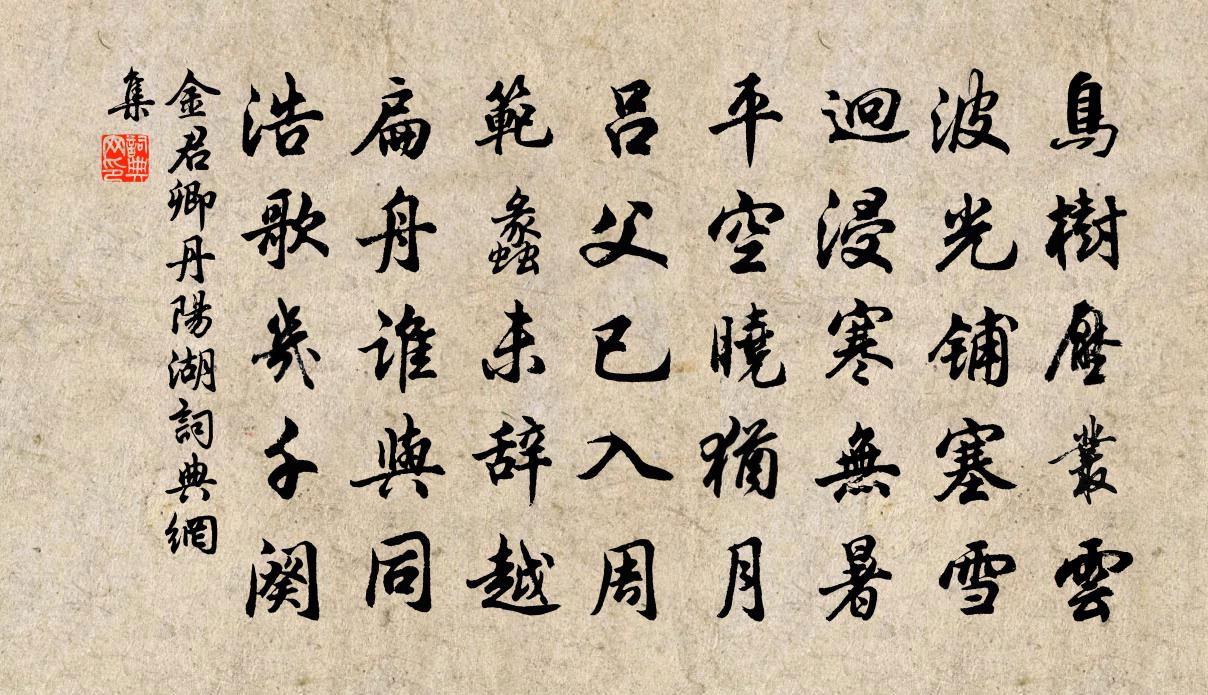 島樹壓叢雲
波光鋪塞雪
迥浸寒無暑
平空曉猶月
呂父已入周
範蠡未辭越
扁舟誰與同
浩歌幾千闋
金君卿丹陽湖詞典網
集
詞典網印